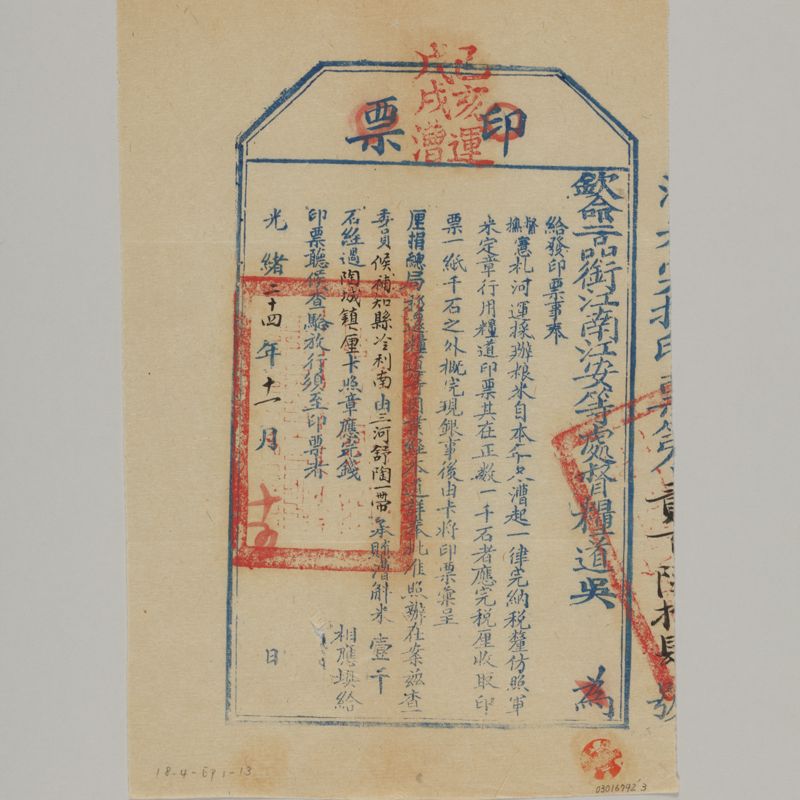 己亥運
戊戌漕
印票
欽命二品銜江南江安等處督糧道吳 為
給發印票事奉
督撫憲札河運採辦粮米自本年戊漕起一律完納稅釐仿照軍
米定章行用糧道印票其在正數一千石者應完稅厘收取印
票一紙千石之外概完現銀事後由卡將印票彙呈
厘捐總局 在案茲查
委員候補知縣冷利南由三河舒陶一帶采購漕斛米壹千
石經過陶城鎮厘卡照章應完錢 相應填給
印票聽候查驗放行須至印票者
光緒二十四年十一月十五日
號
18-4-E91-13
03016792 3